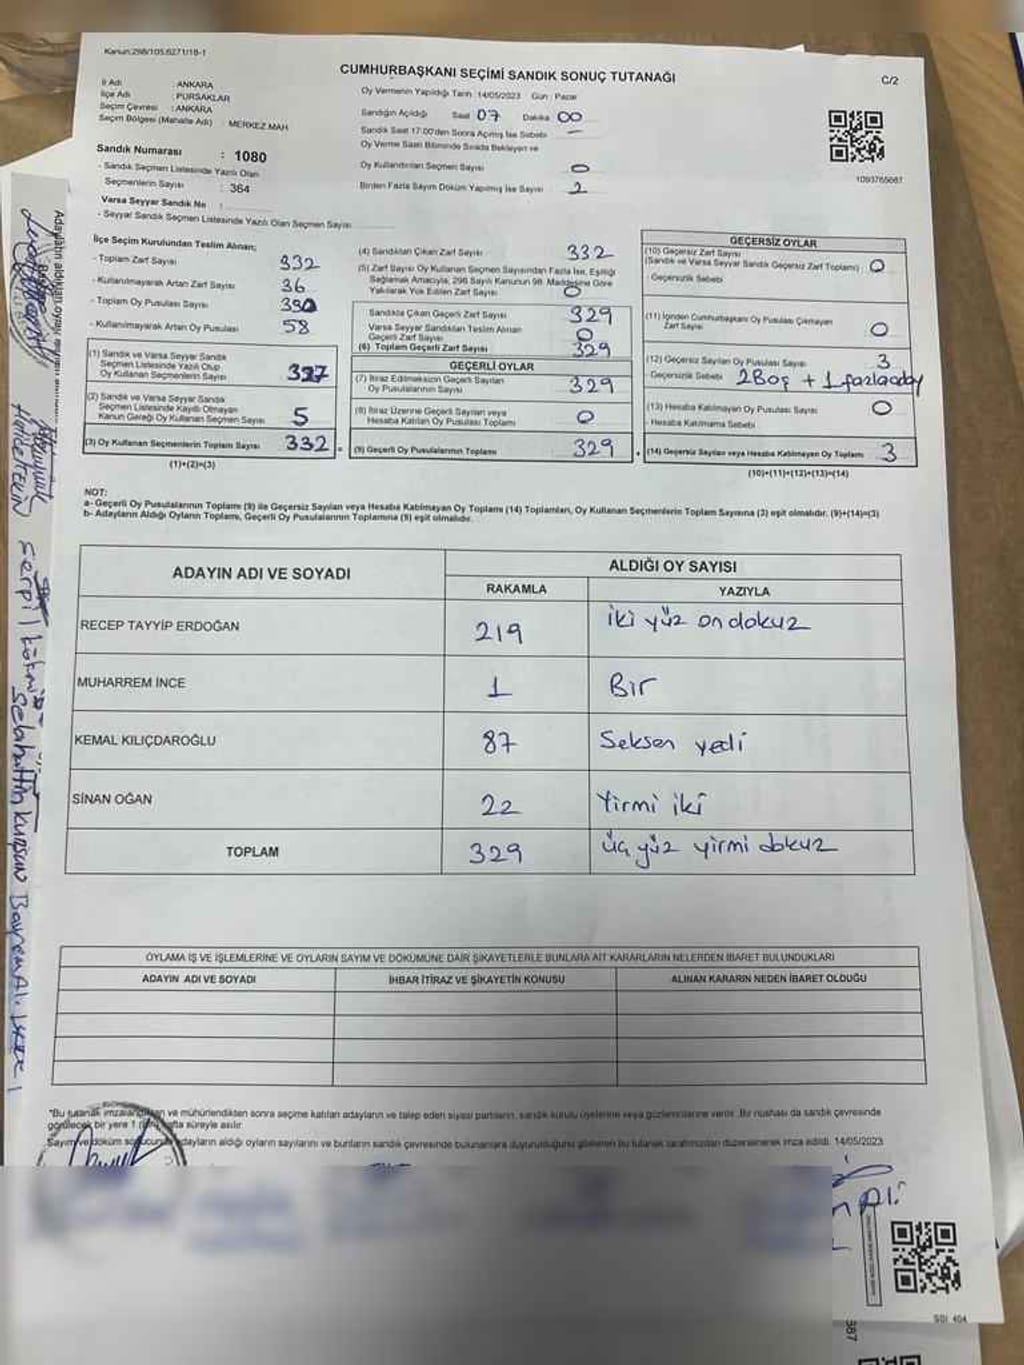 Kanun:298/105.6271/18-1
CUMHURBAŞKANI SEÇİMİ SANDIK SONUÇ TUTANAĞI
C/2
İl Adı : ANKARA
İlçe Adı : PURSAKLAR
Seçim Çevresi : ANKARA
Seçim Bölgesi (Mahalle Adı) : MERKEZ MAH
Sandık Numarası : 1080
- Sandık Seçmen Listesinde Yazılı Olan
Seçmenlerin Sayısı : 364
Varsa Seyyar Sandık No :
- Seyyar Sandık Seçmen Listesinde Yazılı Olan Seçmen Sayısı
Oy Vermenin Yapıldığı Tarih 14/05/2023 Gün : Pazar
Sandığın Açıldığı Saat 07 Dakika 00
Sandık Saat 17:00'den Sonra Açılmış İse Sebebi —
Oy Verme Saati Bitiminde Sırada Bekleyen ve
Oy Kullandırılan Seçmen Sayısı 0
Birden Fazla Sayım Döküm Yapılmış İse Sayısı 2
1093765687
İlçe Seçim Kurulundan Teslim Alınan;
- Toplam Zarf Sayısı 332
- Kullanılmayarak Artan Zarf Sayısı 36
- Toplam Oy Pusulası Sayısı 390
- Kullanılmayarak Artan Oy Pusulası 58
(1) Sandık ve Varsa Seyyar Sandık
Seçmen Listesinde Yazılı Olup
Oy Kullanan Seçmenlerin Sayısı 327
(2) Sandık ve Varsa Seyyar Sandık
Seçmen Listesinde Kayıtlı Olmayan
Kanun Gereği Oy Kullanan Seçmen Sayısı 5
(3) Oy Kullanan Seçmenlerin Toplam Sayısı 332 =
(1)+(2)=(3)
(4) Sandıktan Çıkan Zarf Sayısı 332
(5) Zarf Sayısı Oy Kullanan Seçmen Sayısından Fazla İse, Eşitliği
Sağlamak Amacıyla, 298 Sayılı Kanunun 98. Maddesine Göre
Yakılarak Yok Edilen Zarf Sayısı 0
Sandıkta Çıkan Geçerli Zarf Sayısı 329
Varsa Seyyar Sandıktan Teslim Alınan
Geçerli Zarf Sayısı 0
(6) Toplam Geçerli Zarf Sayısı 329
GEÇERLİ OYLAR
(7) İtiraz Edilmeksizin Geçerli Sayılan
Oy Pusulalarının Sayısı 329
(8) İtiraz Üzerine Geçerli Sayılan veya
Hesaba Katılan Oy Pusulası Toplamı 0
(9) Geçerli Oy Pusulalarının Toplamı 329 +
GEÇERSİZ OYLAR
(10) Geçersiz Zarf Sayısı
(Sandık ve Varsa Seyyar Sandık Geçersiz Zarf Toplamı) 0
- Geçersizlik Sebebi
(11) İçinden Cumhurbaşkanı Oy Pusulası Çıkmayan
Zarf Sayısı 0
(12) Geçersiz Sayılan Oy Pusulası Sayısı 3
- Geçersizlik Sebebi 2Boş + 1 fazla aday
(13) Hesaba Katılmayan Oy Pusulası Sayısı 0
- Hesaba Katılmama Sebebi
(14) Geçersiz Sayılan veya Hesaba Katılmayan Oy Toplamı 3
(10)+(11)+(12)+(13)=(14)
NOT:
a- Geçerli Oy Pusulalarının Toplamı (9) ile Geçersiz Sayılan veya Hesaba Katılmayan Oy Toplamı (14) Toplamları, Oy Kullanan Seçmenlerin Toplam Sayısına (3) eşit olmalıdır. (9)+(14)=(3)
b- Adayların Aldığı Oyların Toplamı, Geçerli Oy Pusulalarının Toplamına (9) eşit olmalıdır.
ADAYIN ADI VE SOYADI
ALDIĞI OY SAYISI
RAKAMLA YAZIYLA
RECEP TAYYİP ERDOĞAN 219 iki yüz on dokuz
MUHARREM İNCE 1 Bir
KEMAL KILIÇDAROĞLU 87 Seksen yedi
SİNAN OĞAN 22 Yirmi iki
TOPLAM 329 üç yüz yirmi dokuz
OYLAMA İŞ VE İŞLEMLERİNE VE OYLARIN SAYIM VE DÖKÜMÜNE DAİR ŞİKAYETLERLE BUNLARA AİT KARARLARIN NELERDEN İBARET BULUNDUKLARI
ADAYIN ADI VE SOYADI İHBAR İTİRAZ VE ŞİKAYETİN KONUSU ALINAN KARARIN NEDEN İBARET OLDUĞU
*Bu tutanak imzalandıktan ve mühürlendikten sonra seçime katılan adayların ve talep eden siyasi partilerin, sandık kurulu üyelerine veya gözlemcilerine verilir. Bir nüshası da sandık çevresinde
görülecek bir yere 1 hafta süreyle asılır.
Sayım ve döküm sonucunda adayların aldığı oyların sayılarını ve bunların sandık çevresinde bulunanlara duyurulduğunu gösteren bu tutanak tarafımızdan düzenlenerek imza edildi. 14/05/2023
Hande TEKİN
Serpil
Selahattin KURŞUN
Bayram Ali
ALİ
SDI 404